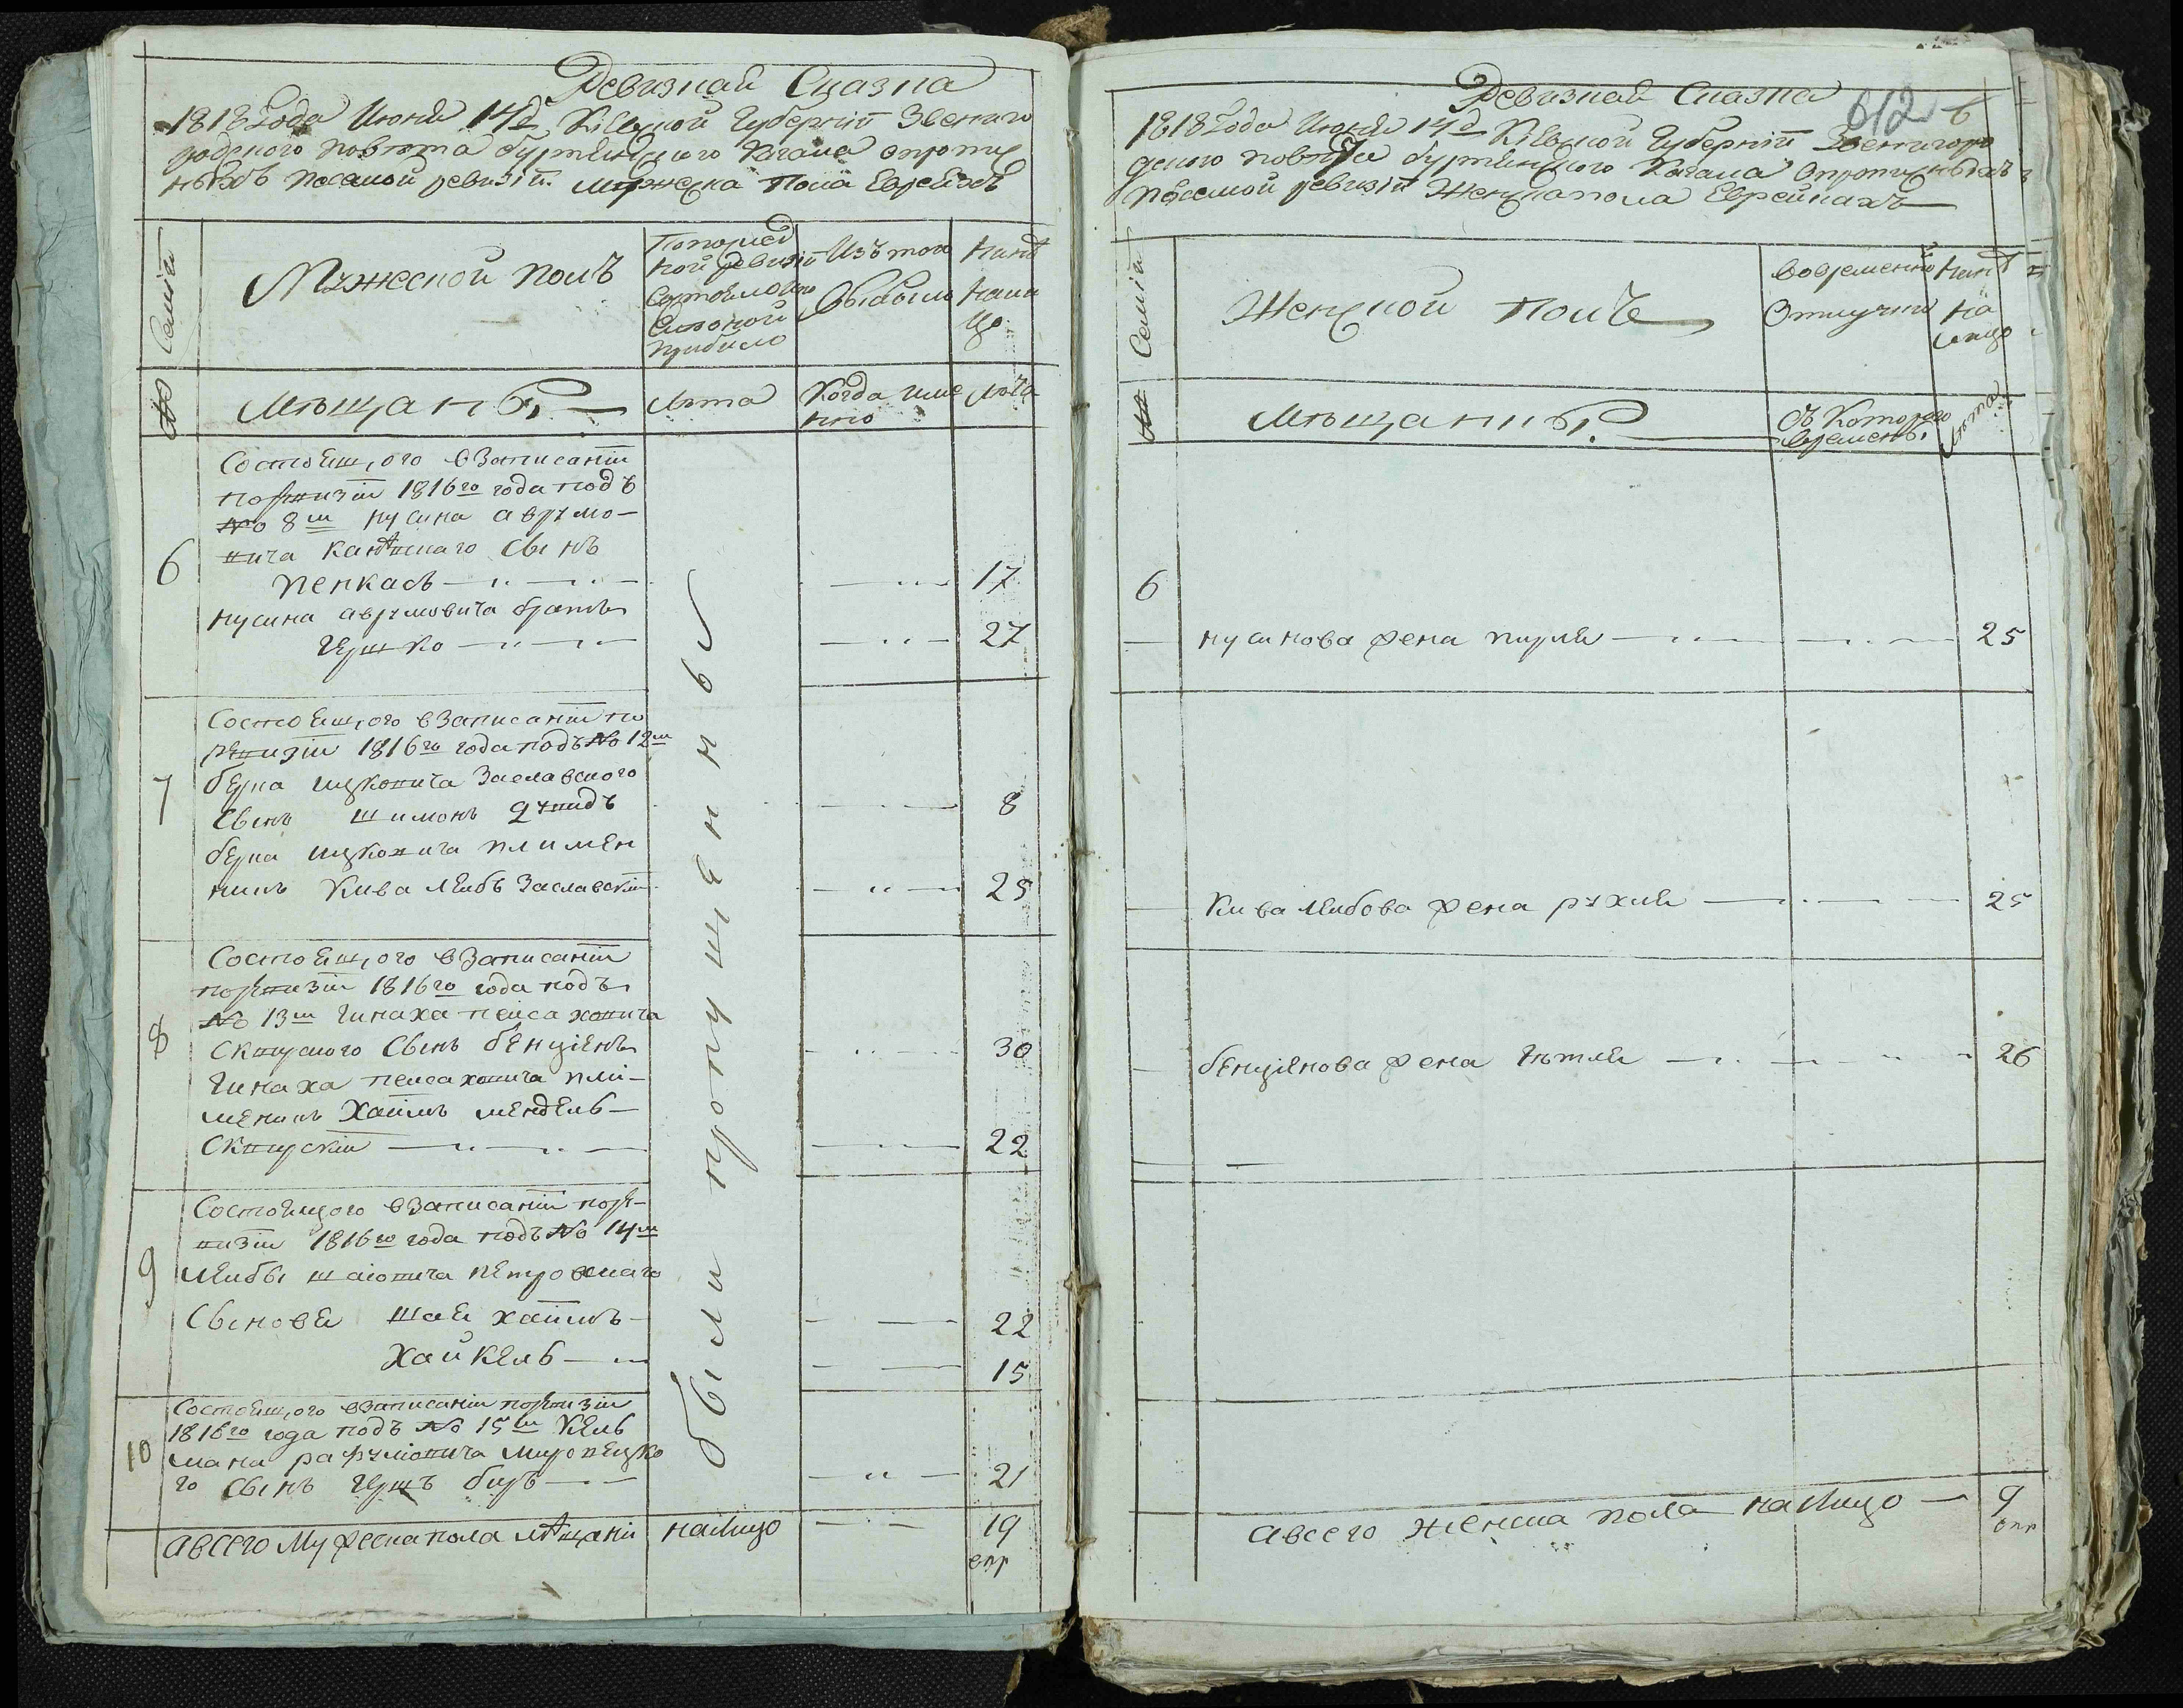 Ревизная Сказка
1818 Года Июня 14д Кіевской Губерніи Звениго
родского повѣта буртянского Кагала опропис
ныхъ поселмой ревизіи Мужеска Пола Евреяхъ
Семіи
Мужеской полъ
Попослед
ней ревизіи
Состояло
прибило
Изъ того
Выбыло
Нинѣ
Нали
цо
№
Мѣщанѣ
Лѣта
Когда име
нно
Лѣта
Состоящого взаписаніи
поревизіи 1816го года подъ
№о 8м нусина аврумо-
вича Канѣвскаго Сынъ
6
пенкасъ
17
нусина аврумовича братъ
гершко
27
Состоящого взаписаніи по
ревизіи 1816го года подъ №о 12м
7
берка ицковича Заславского
Сынъ шимонъ дувидъ
8
берка ицковича племен
никъ Кива леибъ Заславскіи
25
Состоящого взаписаніи
поревизіи 1816го года подъ
№о 13м гинаха пеиса ховича
8
Сквирского Сынъ бенціенъ
30
гинаха пеисаховича плі-
меникъ хаимъ мендель
Сквирскіи
22
Состоящого взаписаніи поре-
визіи 1816го года подъ №о 14м
9
леибы шаіовича петровскаго
Сыновя шая хаимъ
22
Хайкель
15
Состоящого взаписаніи поревизіи
1816го года подъ №о 15м Кель
10
мана рафумовича Миропецко
го Сынъ гершъ беръ
21
были пропущенны
авсего Мужеска пола мѣщанѣ налицо
19
Ревизная Сказка
612
1818 Года Июня 14д Кіевской Губерніи Звенигоро
дского повѣта буртянского Кагала опрописныхъ
поселмой ревизіи Женска пола Еврейкахъ
Семіи
Женской полъ
вовременно
Отлучки
Нинѣ
На
лицо
№
Мѣщанкѣ
Съ Которого
времены
Лѣта
6
нусинова жена пирля
25
Кива леибова жена рухля
25
бенціянова жена етля
26
авсего женска пола налицо
9